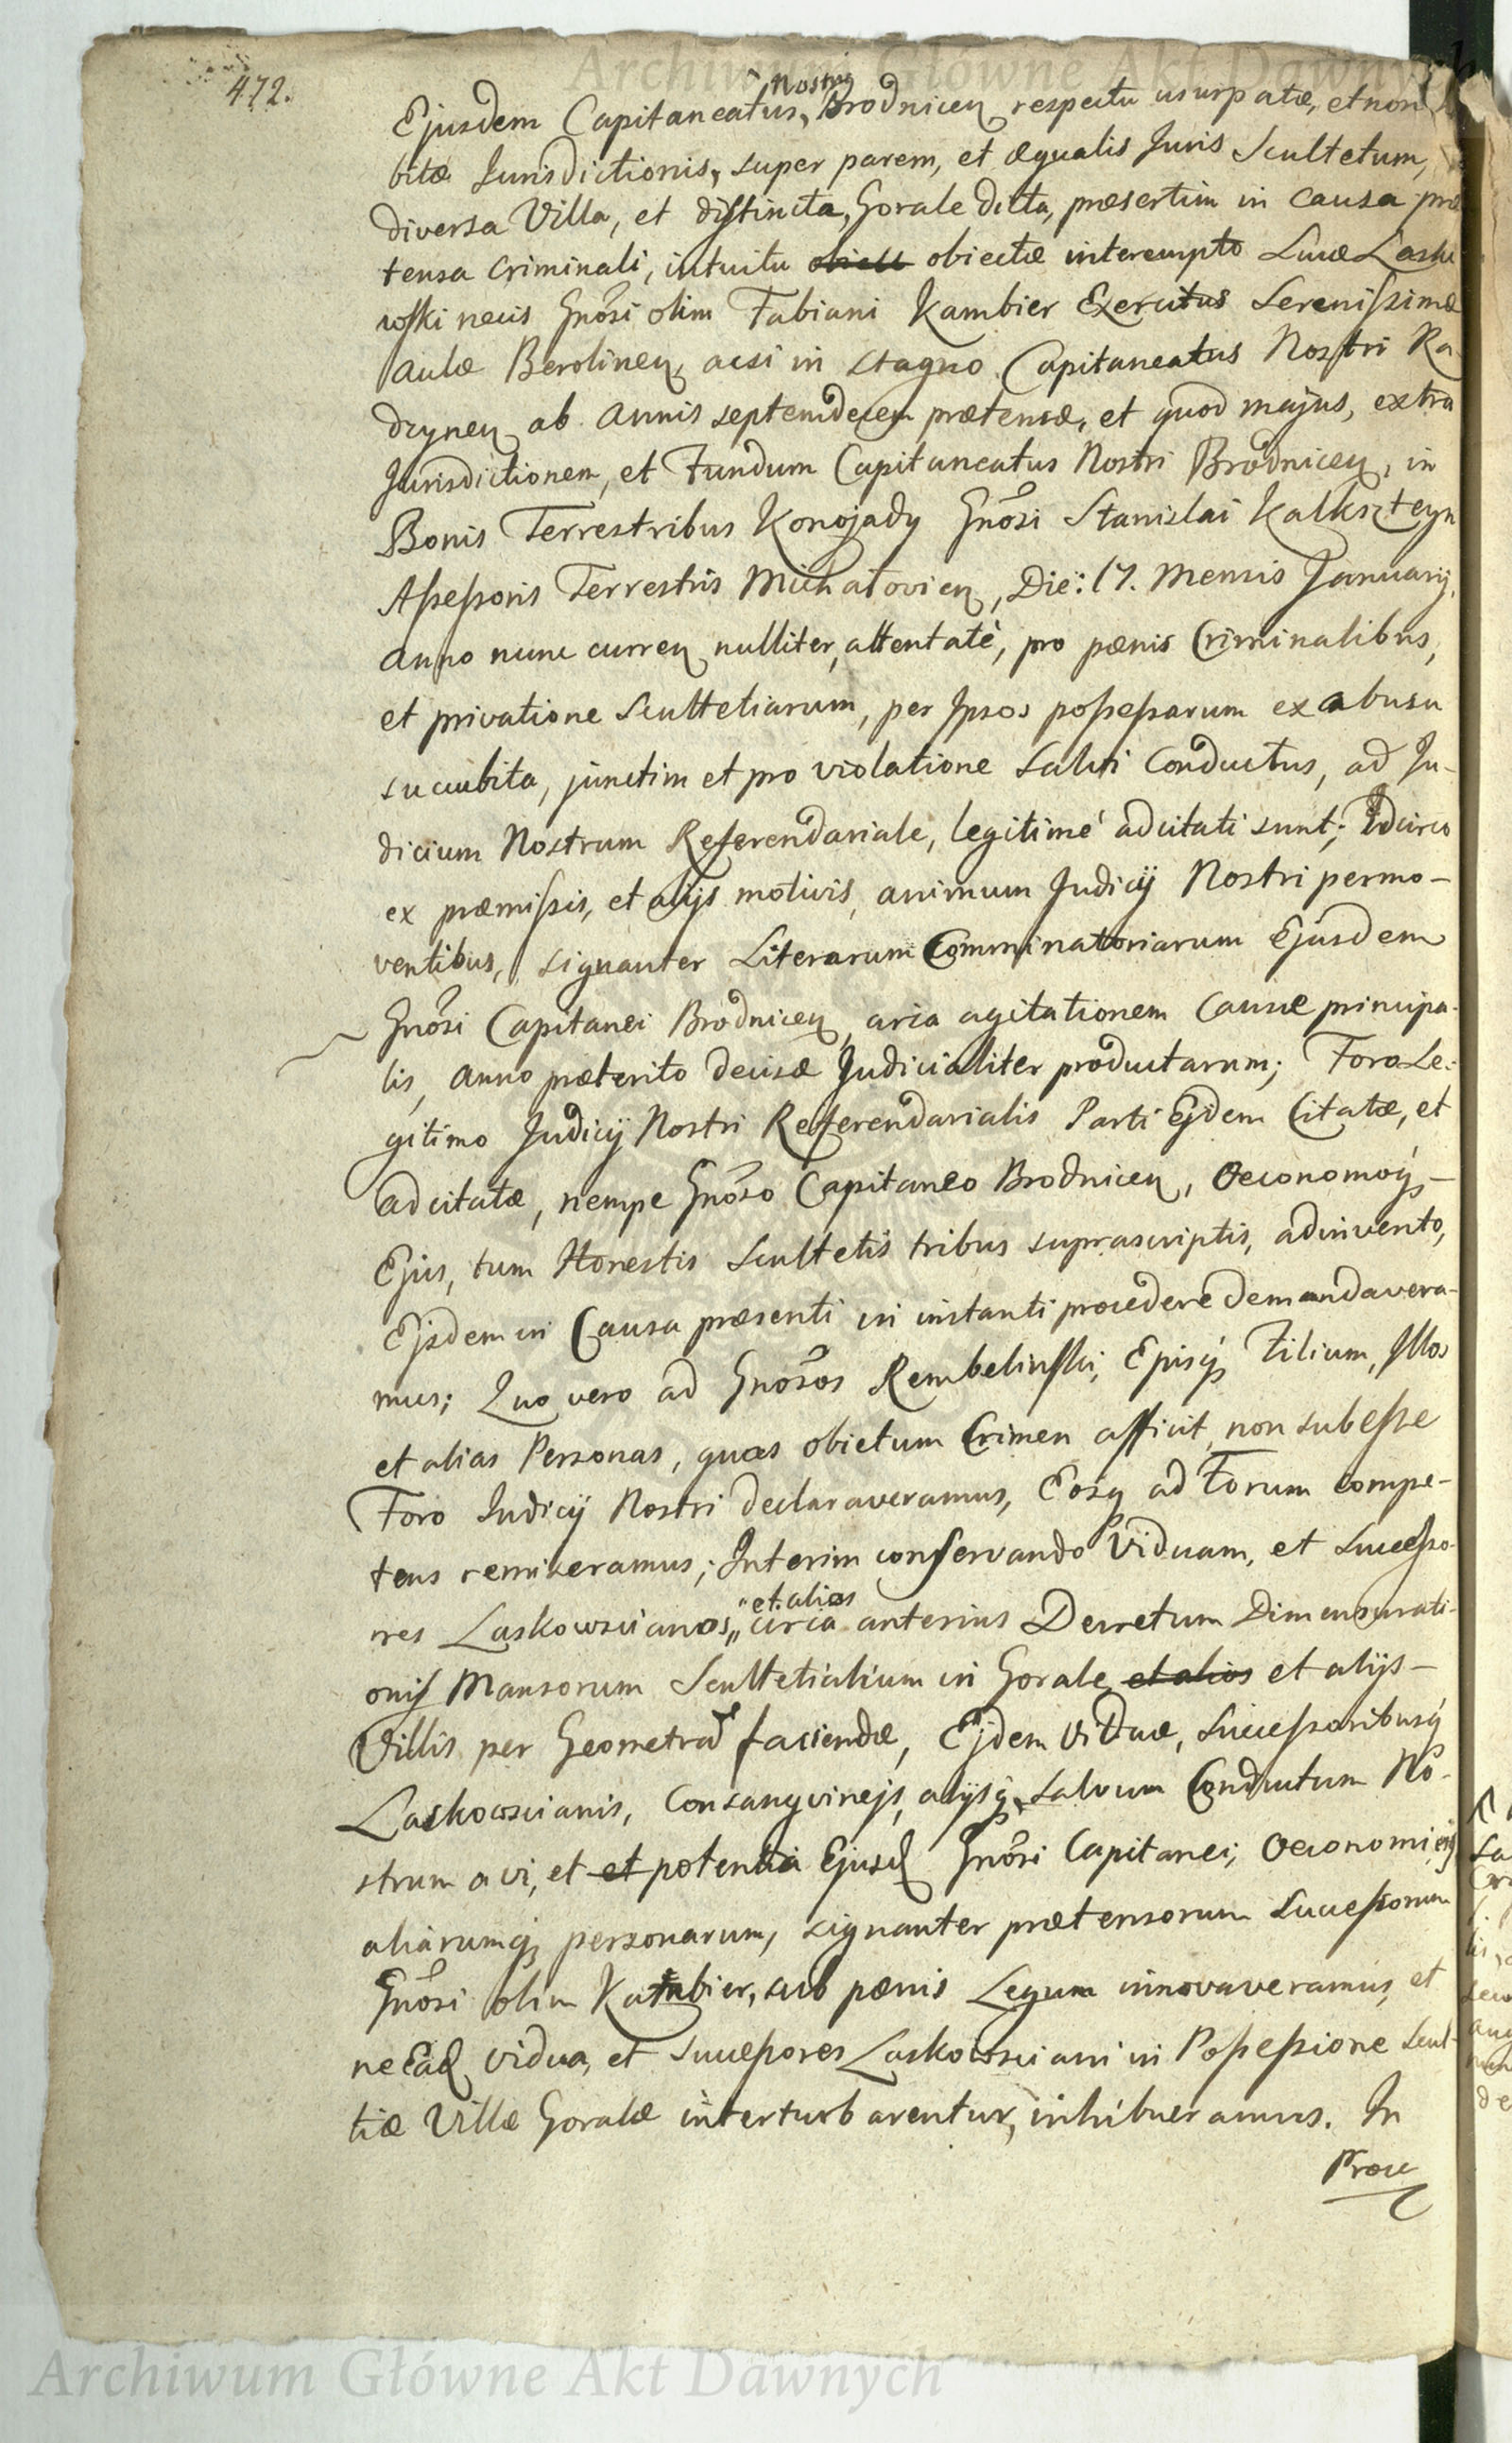 Archiwum Główne Akt Dawnych
472.
Nostri
Ejusdem Capitaneatus, Brodnicen respectu usurpatæ, et non
bitæ Jurisdictionis, super parem, et æqualis Juris Scultetum,
diversa Villa, et distincta, Gorale dicta, præsertim in causa præ
tensa criminali, intuitu obiectæ interempto Lucæ Lasko
wski necis Gnosi olim Fabiani Kambier Exercitus Serenissimæ
Aulæ Berolinen, acsi in stagno Capitaneatus Nostri Ra
dzynen ab annis septemdecem prætensæ, et quod majus, extra
Jurisdictionem, et Fundum Capitaneatus Nostri Brodnicen, in
Bonis Terrestribus Konojady Gnosi Stanislai Kalkszteyn
Assessoris Terrestris Michałovien, Die: 17. Mensis Januarij,
anno nunc curren nulliter, attentatè, pro pænis Criminalibus,
et privatione Scultetiarum, per Ipsos possessarum ex abusu
succubita, junctim et pro violatione Salvi Conductus, ad Ju-
dicium Nostrum Referendariale, legitimé adcitati sunt; Idcirco
ex præmissis, et alijs motivis, animum Judicij Nostri permo-
ventibus, signanter Literarum Comminatoriarum Ejusdem
Gnosi Capitanei Brodnicen, circa agitationem Causæ principa-
lis, Anno præterito decisæ Judicialiter productarum; Foro Le-
gitimo Judicij Nostri Referendarialis Parti Ejdem Citatæ, et
adcitatæ, nempe Gnoso Capitaneo Brodnicen, Oeconomoq-
Ejus, tum Honestis Scultetis tribus suprascriptis, adinvento,
Ejsdem in Causa præsenti in instanti procedere demandavera-
mus; Quo vero ad Gnosos Rembelinski, Episq Filium, Illos
et alias Personas, quas obiectum Crimen afficit, non subesse
Foro Judicij Nostri declaraveramus, Eosq ad Forum compe-
tens remiseramus; Interim conservando Viduam, et Successo-
"et alios
res Laskowscianos," circa anterius Decretum Dimensurati-
onis Mansorum Scultetialium in Gorale et alios et alijs-
Villis per Geometram faciendæ, Ejdem Viduæ, Successoribusq
Laskowscianis, Consangvinejs, alijsq, Salvum Conductum No-
strum a vi, et et potentia Ejusd Gnosi Capitanei, Oeconomi ejq
aliarumq personarum, signanter prætensorum Successorum
Gnosi olim Kambier, sub pænis Legum innovaveramus, et
ne Ead vidua, et Successores Laskowsciani in Possessione Scul-
tiæ Villæ Goralæ interturbarentur, inhibueramus. In
Proce
Archiwum Główne Akt Dawnych